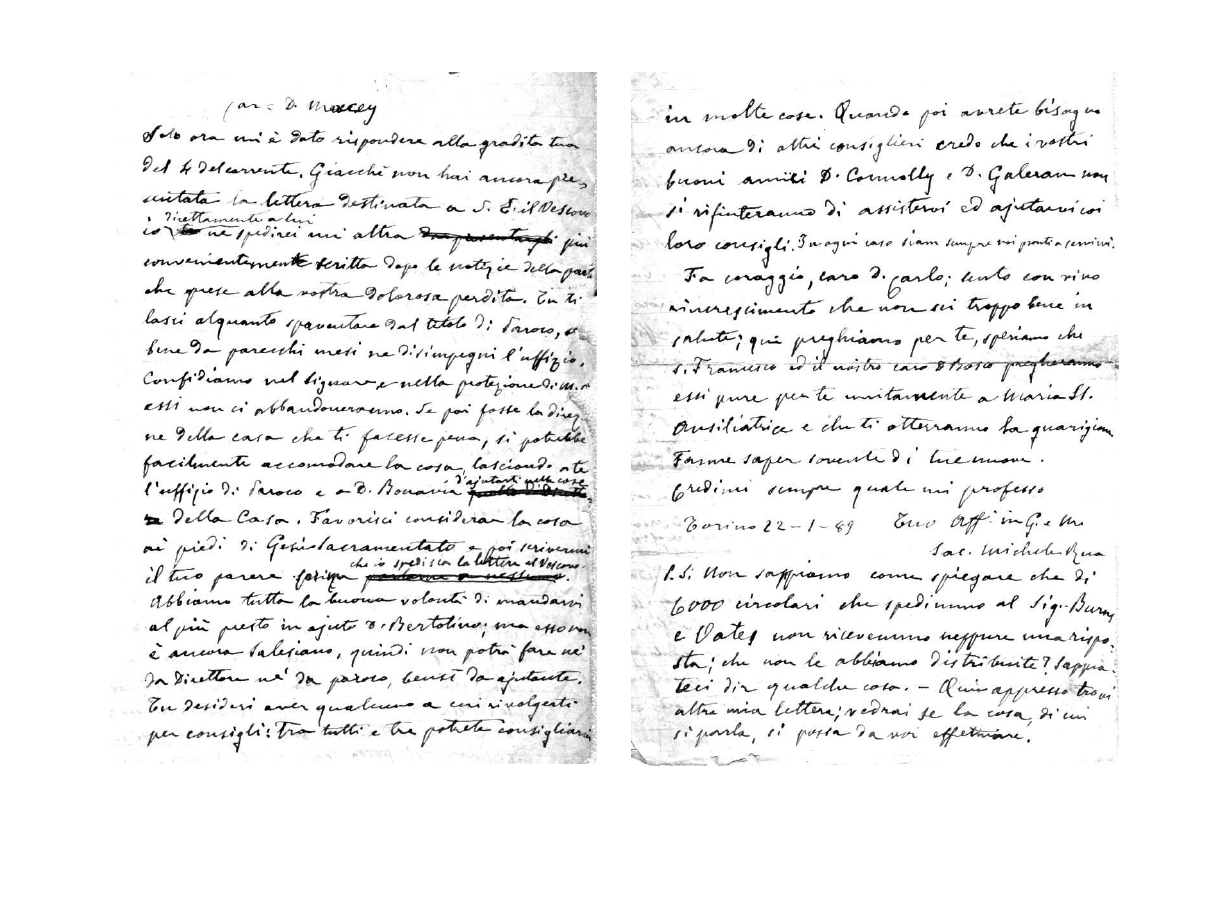 Car. D. Macey
Solo ora mi è dato rispondere alla gradita tua
del 4 del corrente. Giacchè non hai ancora pre=
sentata la lettera destinata a S. E. il Vescovo
direttamente a lui
io ne spedirei un altra da presentargli più
convenientemente scritta dopo le notizie della parte
che prese alla vostra dolorosa perdita. Tu ti
lasci alquanto spaventare dal titolo di Paroco, e
bene da parecchi mesi ne disimpegni l'uffizio.
Confidiamo nel Signore, e nella protezione di M. A
essi non ci abbandoneranno. Se poi fosse la direz
ne della casa che ti facesse pena, si potrebbe
facilmente accomodare la cosa, lasciando a te
d'ajutarti nelle cose
l'uffizio di Paroco e a D. Bonavia quello di Diretto=
re della Casa. Favorisci considerar la cosa
ai piedi di Gesù Sacramentato e poi scrivermi
che io spedisca la lettera al Vescovo
il tuo parere prima parlarne a nessuno.
Abbiamo tutta la buona volontà di mandarvi
al più presto in ajuto D. Bertolino; ma esso non
è ancora Salesiano, quindi non potrà fare nè
da Direttore nè da paroco, bensì da ajutante.
Tu desideri aver qualcuno a cui rivolgerti
per consigli: tra tutti e tre potrete consigliarvi
in molte cose. Quando poi avrete bisogno
ancora di altri consiglieri credo che i vostri
buoni amici D. Connolly e D. Galeran non
si rifiuteranno di assistervi ed ajutarvi coi
loro consigli. In ogni caso siam sempre noi pronti a servirvi.
Fa coraggio, caro D. Carlo; sento con vivo
rincrescimento che non sei troppo bene in
salute; qui preghiamo per te, speriamo che
S. Francesco ed il nostro caro D Bosco pregheranno
essi pure per te unitamente a Maria SS.
Ausiliatrice e che ti otterranno la guarigione
Fanne saper sovente di tue nuove.
Credimi sempre quale mi professo
Torino 22-1-89 Tuo Aff. in G. e M
Sac. Michele Rua
P. S. Non sappiamo come spiegare che di
6000 circolari che spedimmo al Sig. Burns
e Oates non ricevemmo neppure una rispo=
sta; che non le abbiano distribuite? Sappia=
teci dir qualche cosa. - Quì appresso trovi
altra mia lettera; vedrai se la cosa, di cui
si parla, si possa da voi effettuare.